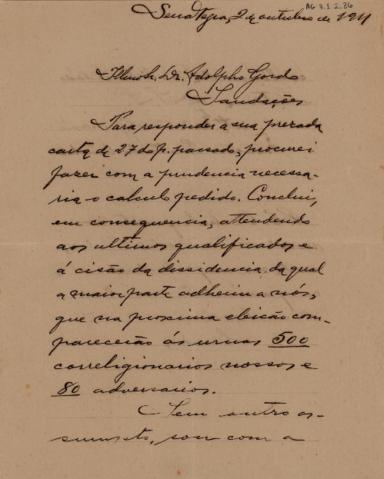 AG 3.1.2.36
2 de outubro de 1911
Illmo Sr. Dr. Adolpho Gordo
Saudações
Para responder a sua prezada
carta de 27 do p. passado, procurei
fazer com a prudencia necessa-
ria o calculo pedido. Conclui,
em consequencia, attendendo
aos ultimos qualificados e
á cisão da dissidencia da qual
a maior parte adheriu a nós,
que na proxima eleição com-
parecerão ás urnas 500
correligionarios nossos e
80 adversarios.
Sem outro as-
sumpto, sou com a